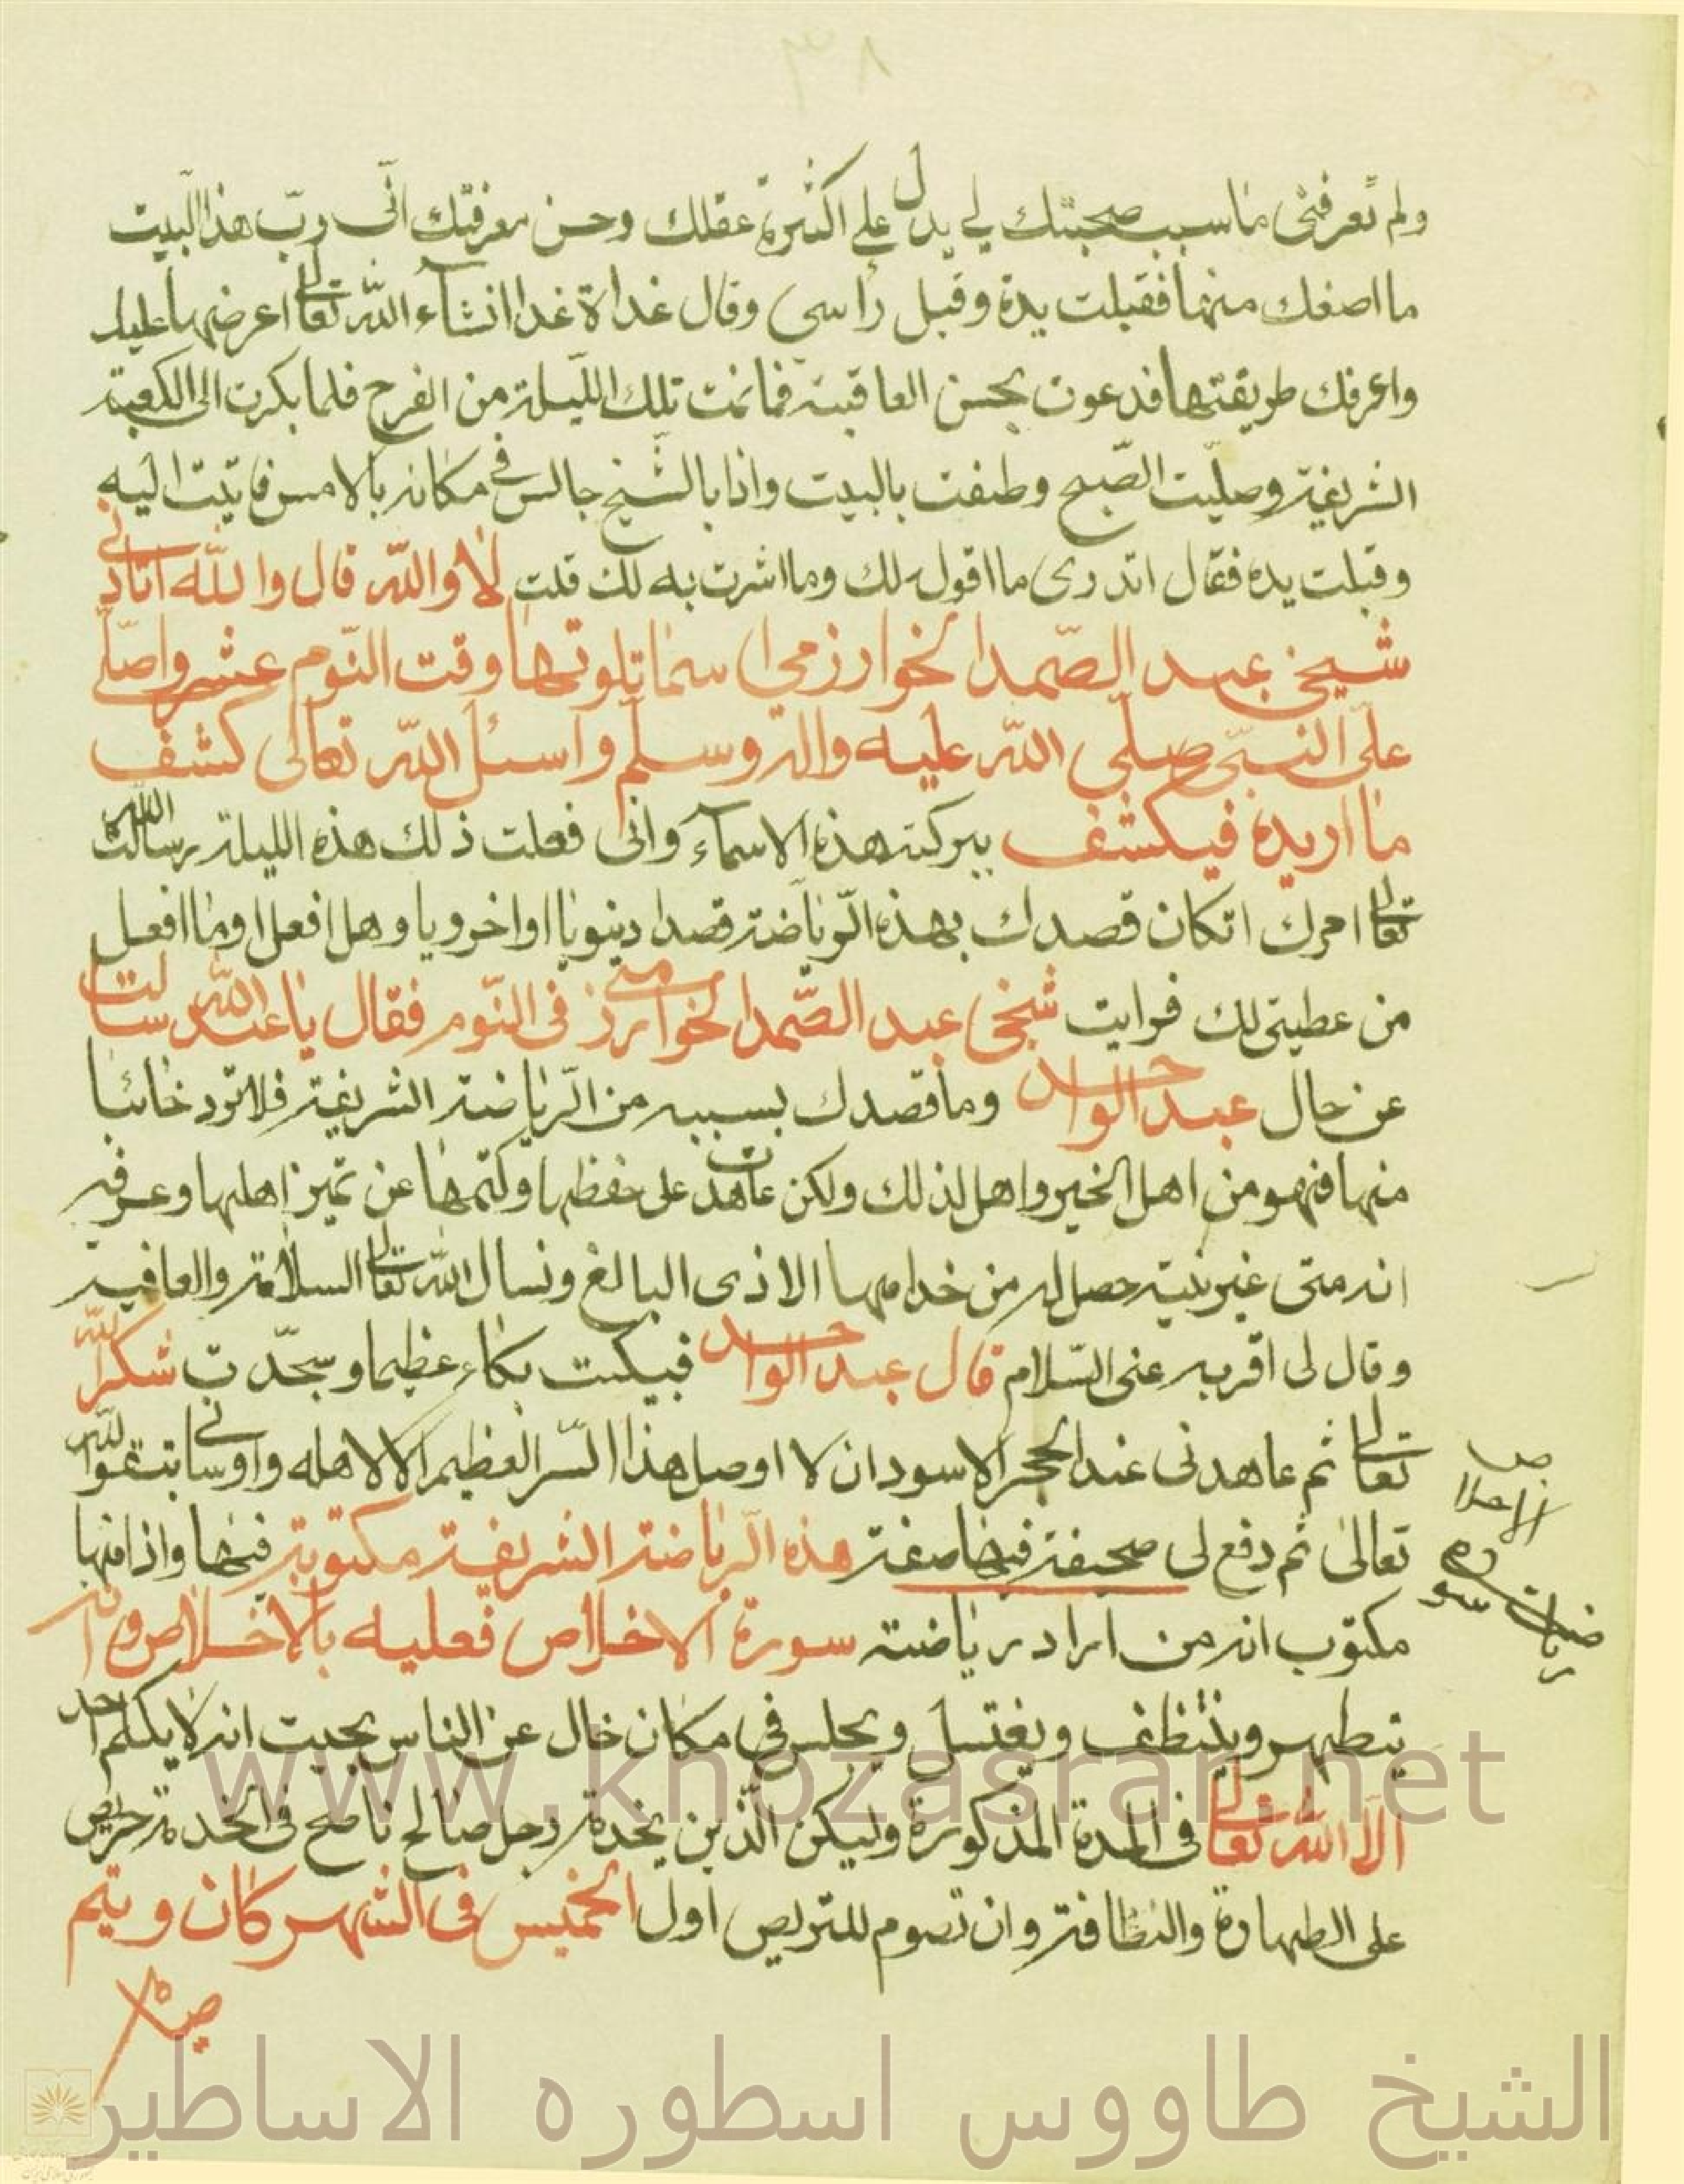 ولم تعرفنی ما سبب صحبتك لي يدل علی اكثرة عقلك وحسن معرفتك انّی وربّ هذا البيت
ما اصغك منها فقبلت يدة وقبل راسی وقال غداة غدا انشآء الله تعالی اعرضها عليك
واعرفك طريقتها فدعوت بحسن العاقبة فما نمت تلك الليلة من الفرح فلما بكرت الی الكعبة
الشريفة وصليت الصّبح وطفت بالبيت واذا بالشّيخ جالس فی مكانه بالامس فاتيت اليه
وقبلت يده فقال اتدری ما اقول لك وما اشرت به لك قلت لا والله قال والله اتانی
شيخی عبد الصّمد الخوارزمی اسما تلوتها وقت النّوم عشر واصلّی
علی النبیّ صلّی الله عليه واله وسلّم واسئل الله تعالی كشف
ما اريده فيكشف ببركة هذه الاسمآء وانی فعلت ذلك هذه الليلة وسالت الله
تعالی امرك اتكان قصدك بهذه الرّياضة قصدا دينويا او اخرويا وهل افعل او ما افعل
من عطيتی لك فرايت شيخی عبد الصّمد الخوارزمی فی النّوم فقال يا عبد الله سالت
عن حال عبد الواحد وما قصدك بسببه من الرّياضة الشريفة فلا ترد خائبا
منها فهو من اهل الخير واهل لذلك ولكن عاهدت علی حفظها وكتمها عن تميز اهلها وعرفه
انه متی غير نيته حصل له من خدامها الاذی البالغ ونسال الله تعالی السلامة والعافية
وقال لی اقربه عنی السّلام قال عبد الواحد فبكيت بكاء عظيما وسجدت شكرا لله
تعالی ثم عاهدنی عند الحجر الاسود ان لا اوصل هذا السّر العظيم الا لاهله واوسانی بتقوالله
تعالی ثم دفع لی صحيفة فيها صفة هذه الرّياضة الشريفة مكتوبة فيها واذا فيها
مكتوب انه من اراد رياضة سورة الاخلاص فعليه بالاخلاص وانه
يتطهر ويتنظف ويغتسل ويجلس فی مكان خال عن الناس بحيث انه لا يكلم احد
الا الله تعالی فی المدة المذكورة وليكن الّذين يخدمه رجل صالح ناصح فی الخدمة حريص
علی الطهارة والنظافة وان تصوم للتريص اول الخميس فی الشهر كان ويتم
صيام
رياضت سوره الاخلاص
www.khozasrar.net
الشيخ طاووس اسطوره الاساطير